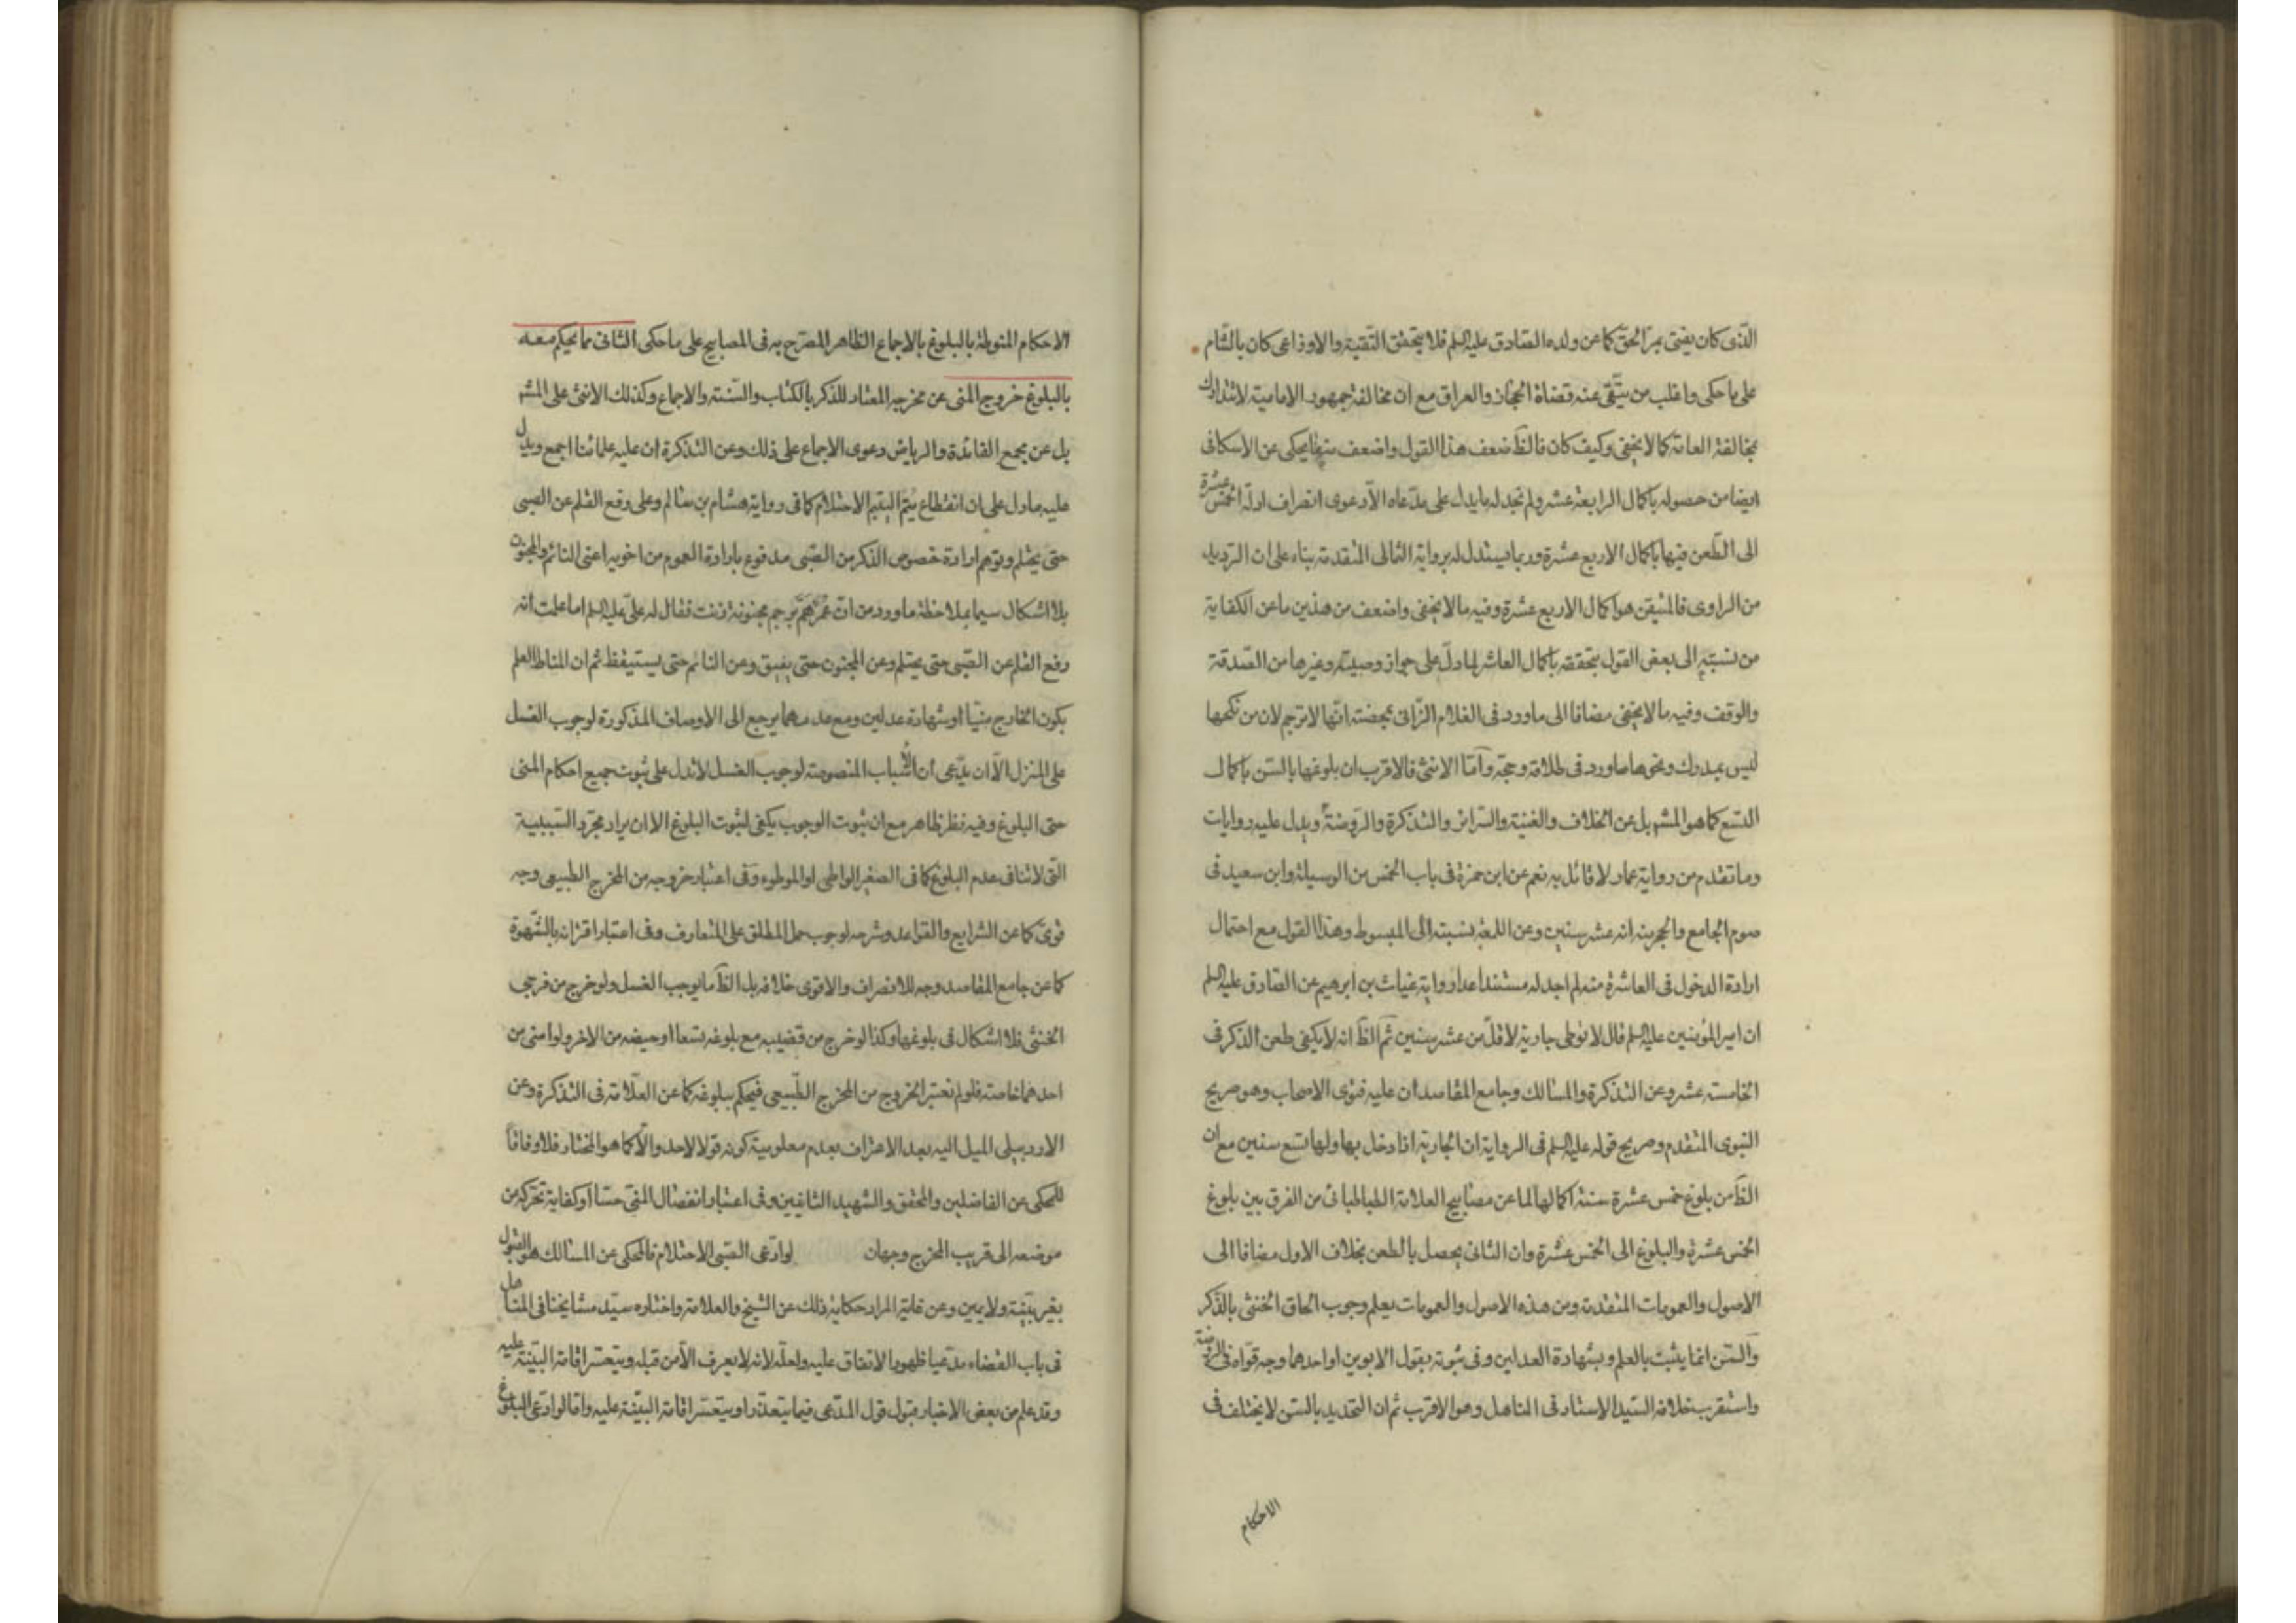 الذى كان يفتى بمرّ الحق كما عن ولده الصّادق عليه السلم فلا يتحقق التقية والاوزاعى كان بالشام
على ما حكى واغلب من يتّقى عنه قضاة الحجاز والعراق مع ان مخالفة جمهور الامامية لا تتدارك
بمخالفة العامة كما لا يخفى وكيف كان فالظ ضعف هذا القول واضعف منه ما يحكى عن الاسكافى
ايضا من حصوله باكمال الرابعة عشر ولم نجد له ما يدل على مدّعاه الّا دعوى انصراف ادلّة الخمس عشرة
الى الطّعن فيها باكمال الاربع عشرة وربما يستدل له برواية الثمالى المتقدمة بناء على ان الترديد
من الراوى فالمتيقن هو اكمال الاربع عشرة وفيه ما لا يخفى واضعف من هذين ما عن الكفاية
من نسبته الى بعض القول بتحققه باكمال العاشر لما دلّ على جواز وصيته وغيرها من الصدقة
والوقف وفيه ما لا يخفى مضافا الى ما ورد فى الغلام الزانى بمحصنة انها لا ترجم لان من نكحها
ليس بمدرك ونحوها ما ورد فى طلاقه وحجّه وامّا الانثى فالاقرب ان بلوغها بالسن باكمال
التسع كما هو المشهر بل عن الخلاف والغنية والسرائر والتذكرة والروضة ويدل عليه روايات
وما تقدم من رواية عمار لا قائل به نعم عن ابن حمزة فى باب الخمس من الوسيلة وابن سعيد فى
صوم الجامع والحجر منه انه عشر سنين وعن اللمعة نسبته الى المبسوط وهذا القول مع احتمال
ارادة الدخول فى العاشرة منه لم اجد له مستندا عدا رواية غياث بن ابرهيم عن الصّادق عليه السلم
ان امير المؤمنين عليه السلم قال لا توطى جارية لاقلّ من عشر سنين ثم الظ انه لا يكفى طعن الذكر فى
الخامسة عشر وعن التذكرة والمسالك وجامع المقاصد ان عليه فتوى الاصحاب وهو صريح
النبوى المتقدم وصريح قوله عليه السلم فى الرواية ان الجارية اذا دخل بها ولها تسع سنين مع ان
الظ من بلوغ خمس عشرة سنة اكمالها لما عن مصابيح العلامة الطباطبائى من الفرق بين بلوغ
الخمس عشرة والبلوغ الى الخمس عشرة وان الثانى يحصل بالطعن بخلاف الاول مضافا الى
الاصول والعمومات المتقدمة ومن هذه الاصول والعمومات يعلم وجوب الحاق الخنثى بالذكر
والسن انما يثبت بالعلم وبشهادة العدلين وفى ثبوته بقول الابوين او احدهما وجه قواه فى الروضة
واستقرب خلافه السيد الاستاد فى المناهل وهو الاقرب ثم ان التحديد بالسن لا يختلف فى
الاحكام
الاحكام المنوطة بالبلوغ بالاجماع الظاهر المصرّح به فى المصابيح على ما حكى الثانى مما يحكم معه
بالبلوغ خروج المنى عن مخرجه المعتاد للذكر بالكتاب والسّنة والاجماع وكذلك الانثى على المشهر
بل عن مجمع الفائدة والرياض دعوى الاجماع على ذلك وعن التذكرة ان عليه علمائنا اجمع ويدل
عليه ما دل على ان انقطاع يتم اليتيم الاحتلام كما فى رواية هشام بن سالم وعلى رفع القلم عن الصبى
حتى يحتلم وتوهم ارادة خصوص الذكر من الصّبى مدفوع بارادة العموم من اخويه اعنى النائم والمجنون
بلا اشكال سيما بملاحظة ما ورد من انّ عمر همّ برجم مجنونة زنت فقال له علىّ عليه السلم اما علمت انه
رفع القلم عن الصّبى حتى يحتلم وعن المجنون حتى يفيق وعن النائم حتى يستيقظ ثم ان المناط العلم
بكون الخارج منيّا او شهادة عدلين ومع عدمهما يرجع الى الاوصاف المذكورة لوجوب الغسل
على المنزل الّا ان يدّعى ان الاسباب المنصوصة لوجوب الغسل لا تدل على ثبوت جميع احكام المنى
حتى البلوغ وفيه نظر ظاهر مع ان ثبوت الوجوب يكفى لثبوت البلوغ الا ان يراد مجرّد السّببية
التى لا تنافى عدم البلوغ كما فى الصغير الواطى او الموطوء وفى اعتبار خروجه من المخرج الطبيعى وجه
قوىّ كما عن الشرايع والقواعد وشرحه لوجوب حمل المطلق على المتعارف وفى اعتبار اقترانه بالشّهوة
كما عن جامع المقاصد وجه للانصراف والاقوى خلافه بل الظ ما يوجب الغسل ولو خرج من فرجى
الخنثى فلا اشكال فى بلوغها وكذا لو خرج من قضيبه مع بلوغه تسعا او حيضه من الاخر ولو امنى من
احدهما خاصة فلو لم نعتبر الخروج من المخرج الطّبيعى فيحكم ببلوغه كما عن العلّامة فى التذكرة وعن
الاردبيلى الميل اليه بعد الاعتراف بعدم معلومية كونه قولا لاحد والّا كما هو المختار فلا وفاقا
للمحكى عن الفاضلين والمحقق والشهيد الثانيين وفى اعتبار انفصال المنى حسّا او كفاية تحركه من
موضعه الى قريب المخرج وجهان لو ادّعى الصّبى الاحتلام فالمحكى عن المسالك هو القبول
بغير بيّنة ولا يمين وعن غاية المراد حكاية ذلك عن الشيخ والعلامة واختاره سيّد مشايخنا فى المناهل
فى باب القضاء مدّعيا ظهور الاتفاق عليه ولعلّه لانه لا يعرف الّا من قبله ويتعسّر اقامة البيّنة عليه
وقد علم من بعض الاخبار قبول قول المدّعى فيما يتعذّر او يتعسّر اقامة البيّنة عليه وامّا لو ادّعى البلوغ